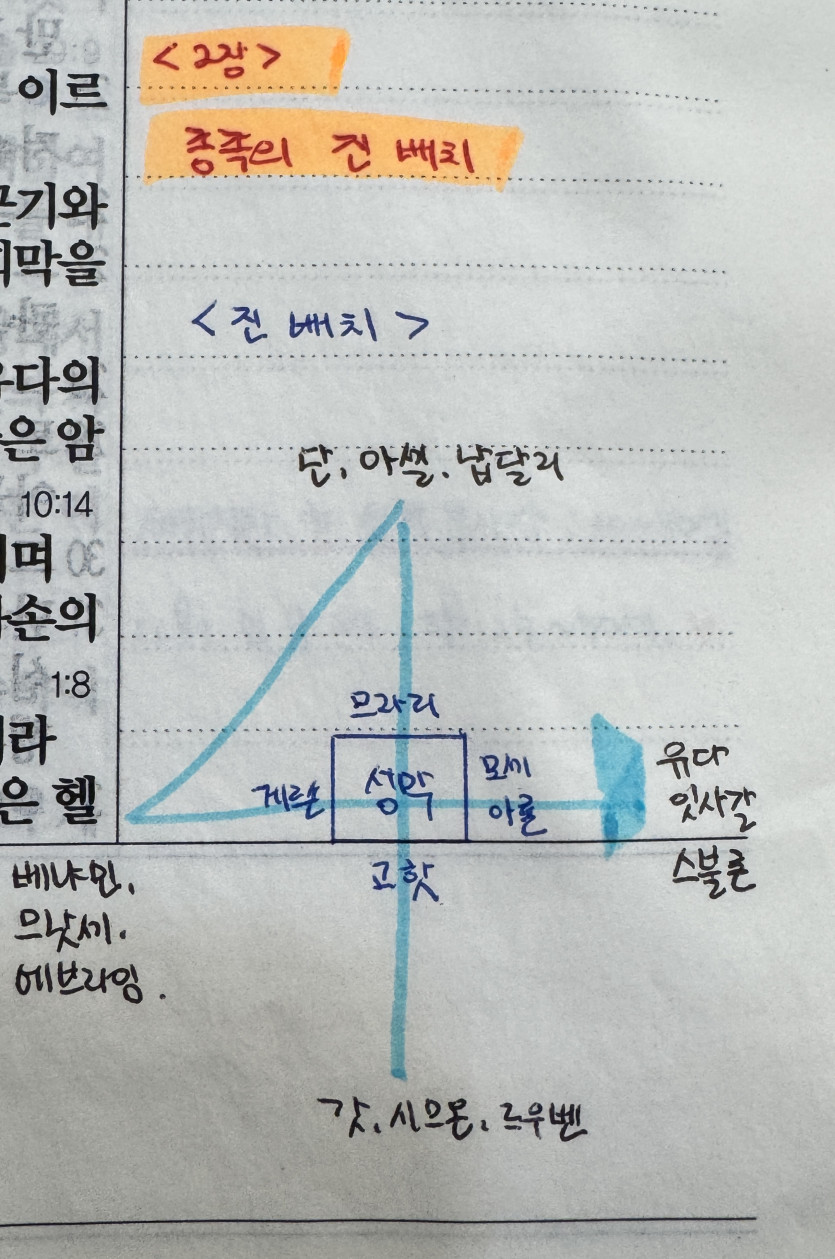 <2장>
이르
종족의 진 배치
근기와
막을
<진 배치>
다의
은 암
단, 아셀, 납달리
10:14
며
손의
1:8
므라리
라
유다
게르손
성막
모세
잇사갈
은 헬
아론
스불론
고핫
베냐민,
므낫세.
에브라임.
갓, 시므온, 르우벤